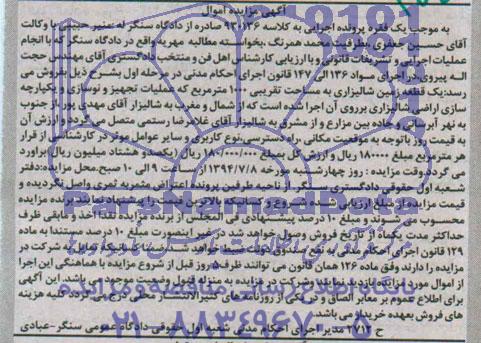 آگهی مزایده اموال
به موجب یک فقره پرونده اجرایی به کلاسه ۹۳۰۱۳۶ صادره از دادگاه سنگر له منیر حبیبی با وکالت
آقای حسین جعفری بطرفیت محمد همرنگ بخواسته مطالبه مهریه واقع در دادگاه سنگر که با انجام
عملیات اجرایی و تشریفات قانونی و با ارزیابی کارشناس اهل فن و منتخب دادگستری آقای مهندس حجت
اله پیروی در اجرای مواد ۱۳۶ الی ۱۴۷ قانون اجرای احکام مدنی در مرحله اول بشرح ذیل بفروش می
رسد: یک قطعه زمین شالیزاری به مساحت تقریبی ۱۰۰۰ مترمربع که عملیات تجهیز و نوسازی و یکپارچه
سازی اراضی شالیزاری برروی آن اجرا شده است که از شمال و مغرب به شالیزار آقای مهدی پور از جنوب
به نهر آبرسانی و جاده بین مزارع و از مشرق به شالیزار آقای غلامرضا رستمی متصل می گردد و ارزش آن
به قیمت روز باتوجه به موقعیت مکانی راه دسترسی نوع کاربری و سایر عوامل موثر در کارشناسی از قرار
هر مترمربع مبلغ ۱۸۰۰۰۰ ریال و ارزش کل بمبلغ ۱۸۰/۰۰۰/۰۰۰ ریال (یکصد و هشتاد میلیون ریال) برآورد
می گردد وقت مزایده : روز چهارشنبه مورخه ۱۳۹۴/۷/۸ از ساعت ۹ الی ۱۰ صبح محل مزایده: دفتر
شعبه اول حقوقی دادگستری سنگر از ناحیه طرفین پرونده اعتراض مثمربه ثمری واصل نگردیده و
قیمت مزایده از مبلغ ارزیابی شده شروع و کسانیکه بالاترین قیمت را پیشنهاد نمایند برنده مزایده
محسوب می شوند و مبلغ ۱۰ درصد پیشنهادی فی المجلس از برنده مزایده نقدا اخذ و مابقی ظرف
حداکثر مدت یکماه از تاریخ فروش وصول خواهد شد در غیر اینصورت مبلغ ۱۰ درصد مستندا به ماده
۱۲۹ قانون اجرای احکام مدنی به نفع صندوق دولت ضبط خواهد شد ضمنا کسانیکه تمایل به شرکت در
مزایده را دارند وفق ماده ۱۲۶ همان قانون می توانند ظرف ۵ روز قبل از شروع مزایده با هماهنگی این اجرا
از اموال مورد مزایده بازدید نمایند وشرکت در مزایده به منزله قبول می باشد. این آگهی
برای اطلاع عموم بر معابر الصاق و در یکی از روزنامه های کثیرالانتشار محلی درج می گردد کلیه هزینه
های فروش بعهده خریدار می باشد.
ح ۲۷۱۲ مدیر اجرای احکام مدنی شعبه اول حقوقی دادگاه عمومی سنگر-عبادی
۰۲۱-۸۸۳۴۹۶۷۰-۵